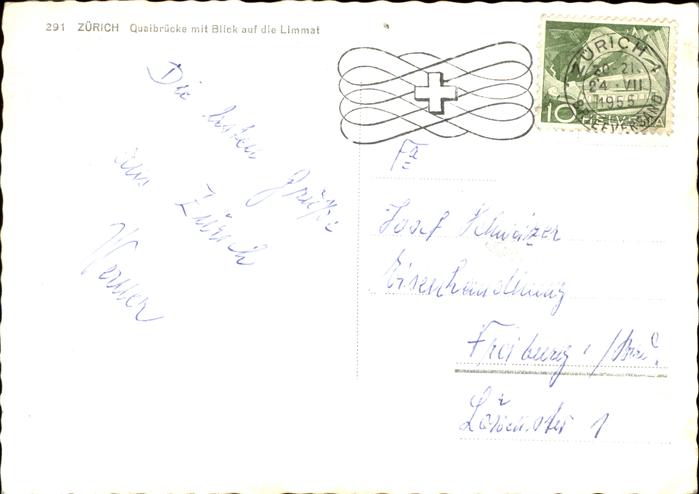 291 ZÜRICH Quaibrücke mit Blick auf die Limmat
ZÜRICH 1
20-21
24.VII
1955
BRIEFVERSAND
10 HELVETIA
Die besten Grüße
aus Zürich
Werner
Fa
Josef Schweizer
Eisenhandlung
Freiburg i/Brsg.
Löwenstr 1